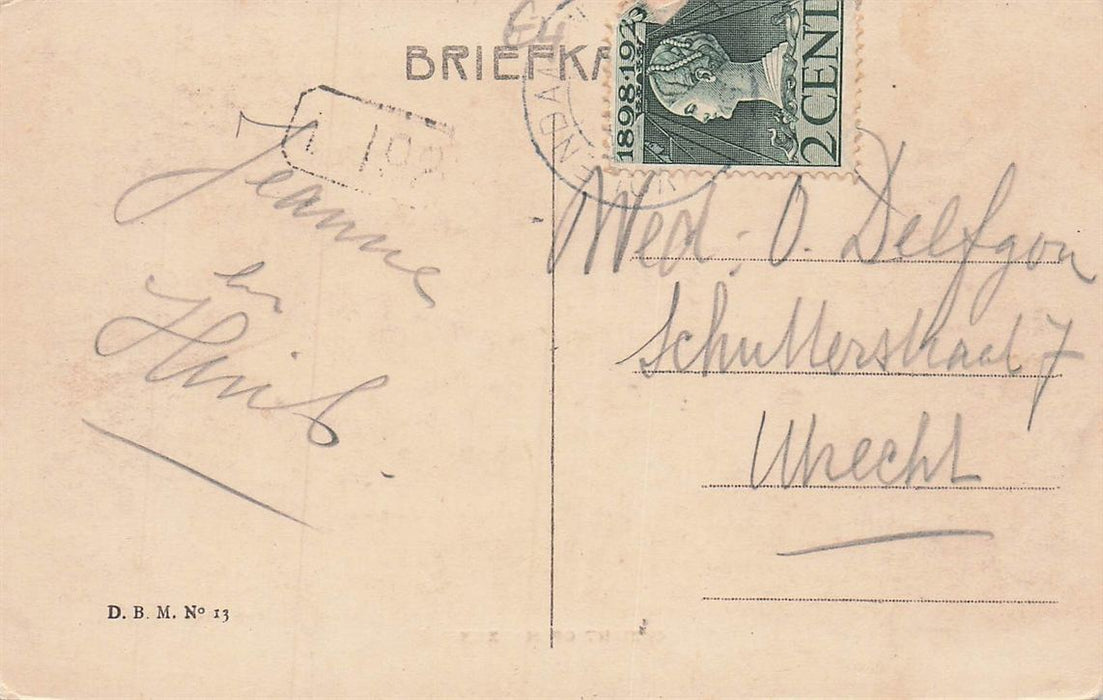 BRIEFKA
1898·1923
2 CENT
Jeanne
en
Huib.
Wed. O. Delfgou
Schutterstraat 7
Utrecht
D. B. M. Nº 13